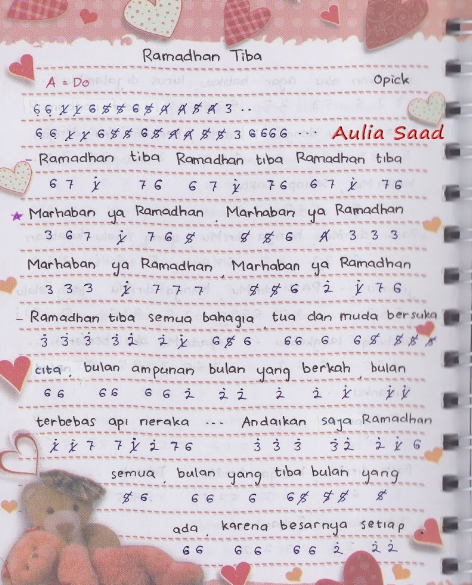 Ramadhan Tiba
A = Do
Opick
6 6 1̸ 1̸ 6 5̸ 5̸ 6 5̸ 4̸ 4̸ 5̸ 4̸ 3 . .
6 6 1̸ 1̸ 6 5̸ 5̸ 6 5̸ 4̸ 4̸ 5̸ 5̸ 3 6 6 6 6 ...
Aulia Saad
- Ramadhan tiba Ramadhan tiba Ramadhan tiba
6 7 i̸ 7 6 6 7 i̸ 7 6 6 7 i̸ 7 6
★ Marhaban ya Ramadhan , Marhaban ya Ramadhan
3 6 7 i̸ 7 6 5̸ 5̸ 5̸ 6 4̸ 3 3 3
Marhaban ya Ramadhan , Marhaban ya Ramadhan
3 3 3 i̸ 7 7 7 5̸ 5̸ 6 2̇ i̸ 7 6
- Ramadhan tiba semua bahagia , tua dan muda bersuka
3̇ 3̇ 3̇ 3̇ 2̇ 2̇ i̸ 6 5̸ 6 6 6 6 6 6 5̸ 5̸ 5̸ 5̸
cita , bulan ampunan bulan yang berkah , bulan
6 6 6 6 6 6 2̇ 2̇ 2̇ 2̇ 2̇ i̸ i̸ i̸
terbebas api neraka ... Andaikan saja Ramadhan
i̸ i̸ 7 7 i̸ 2̇ 7 6 3̇ 3̇ 3̇ 3̇ 2̇ 2̇ i̸ 6
semua , bulan yang tiba bulan yang
5̸ 6 6 6 6 6 5̸ 5̸ 5̸ 5̸
ada , karena besarnya setiap
6 6 6 6 6 6 2̇ 2̇ 2̇